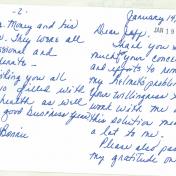 -2-
. Money and his
. They were all
essional and
erate -
ishing you all
filled with
health as well
good business year
Bonnie
January 14,
JAN 19
Dear Jepp.
Thank you
much your concern
and efforts to rem
my helmets problem
Your willingness
work with me
this solution mea
a lot to me.
Please also pas
my gratitude on